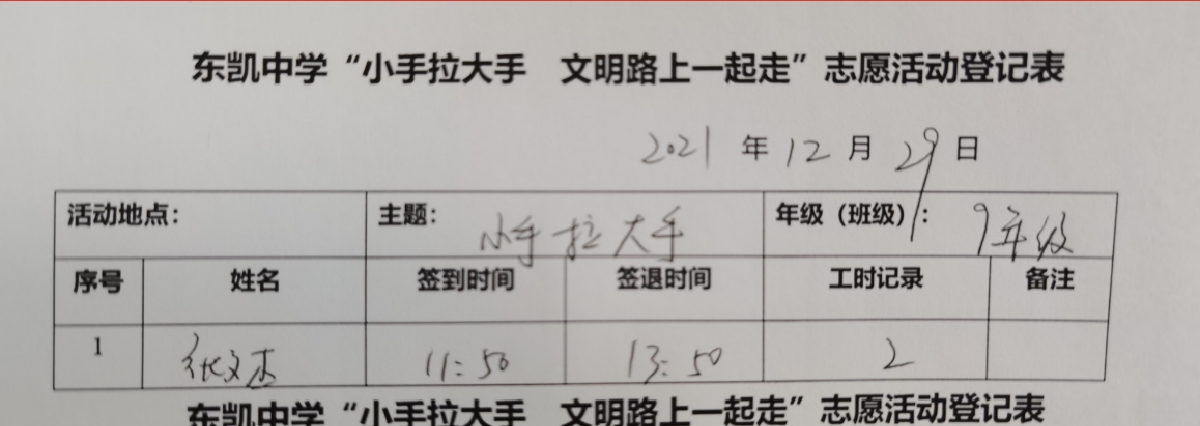 东凯中学“小手拉大手　文明路上一起走”志愿活动登记表
2021 年 12 月 29 日
活动地点： 主题： 小手拉大手 年级（班级）： 9年级
序号 姓名 签到时间 签退时间 工时记录 备注
1 文杰 11:50 13:50 2
东凯中学“小手拉大手　文明路上一起走”志愿活动登记表